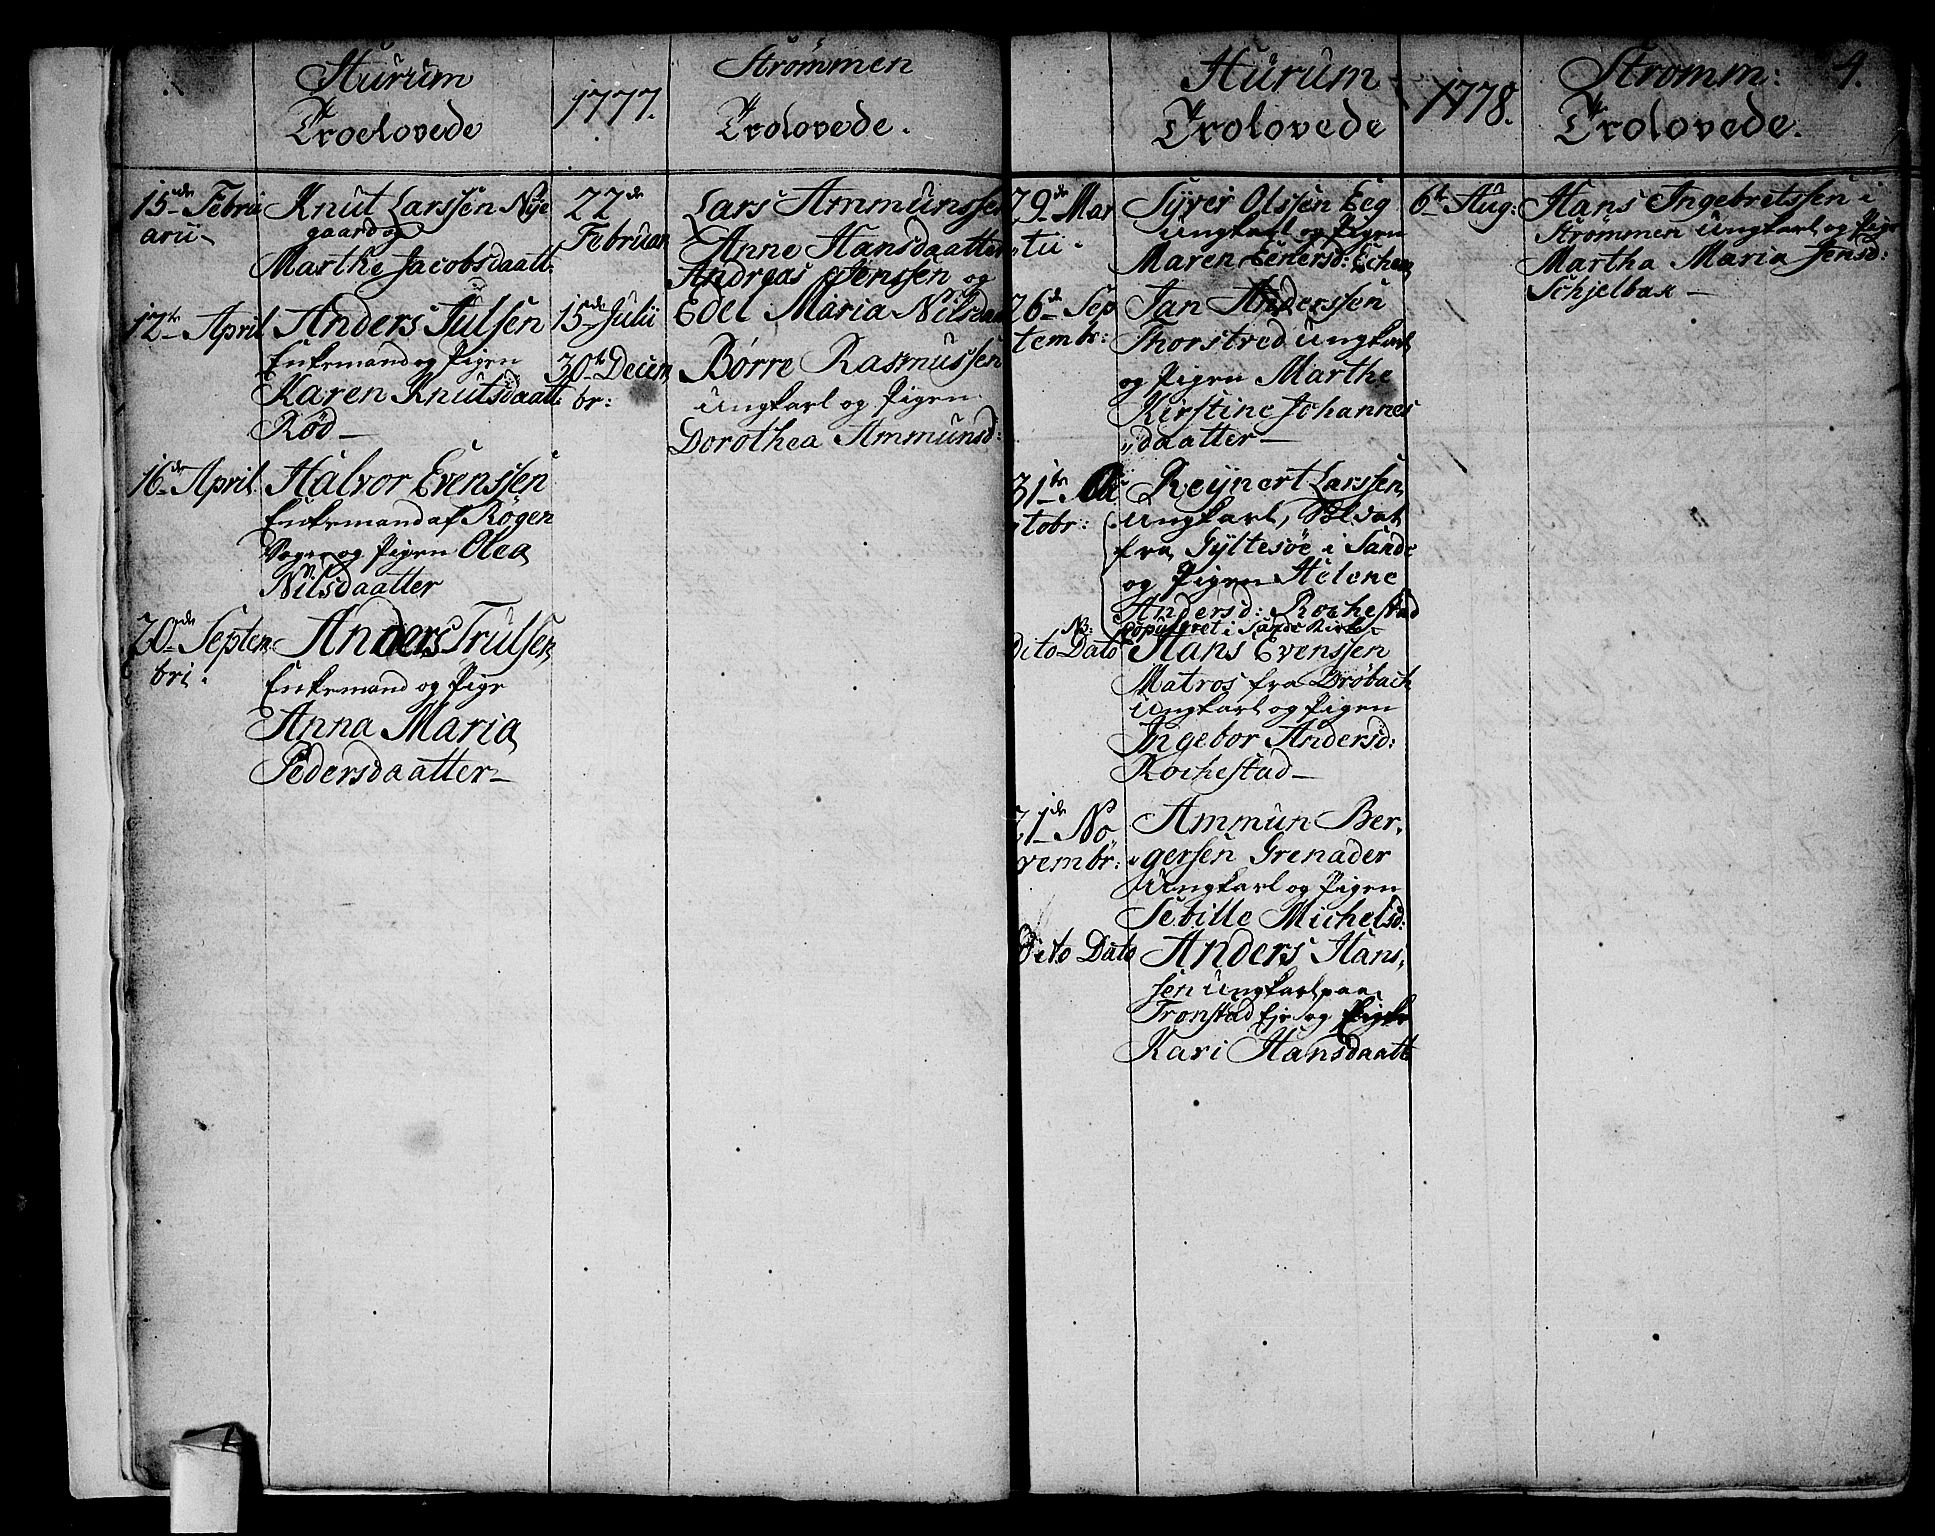 Hurum
Troelovede
15de Febru
arii
Knut Larssen Nye
gaard og
Marthe Jacobsdaatt.
12te April
Anders Julsen
Enkemand og Pigen
Karen Knutsdaatt.
Rød
16de April
Halvor Evenssen
Enkemand af Røgen
Sogn og Pigen Olea
Nilsdaatter
20de Septem
bri.
Anders Trulsen
Enkemand og Pige
Anna Maria
Pedersdaatter
1777.
Strømmen
Trolovede.
22de
Februar
Lars Ammunssen
Anne Hansdaatter
15de Julii
Andreas Jenssen og
Edel Maria Nilsdaa
30te Decem
br:
Børre Rasmussen
Ungkarl og Pigen
Dorothea Ammunsd:
Hurum
Trolovede
29de Mar
tii
Syver Olssen Eeg
Ungkarl og Pigen
Maren Eenersd:
26de Sep
tembr:
Jan Anderssen
Thorstred Ungkarl
og Pigen Marthe
Kirstine Johannes
daatter
31te Oc
tobr:
Reynert Larssen
Ungkarl, Soldat
fra Gyltesøe i Sande
og Pigen Helene
Andersd: Rochestad
NB: copuleret i Sande Kirke
Dito Dato
Hans Evenssen
Matros fra Drøbach
Ungkarl og Pigen
Ingebor Andersd:
Rochestad
21de No
vembr:
Ammun Ber,
gersen Grenader
Ungkarl og Pigen
Sebille Michelsd:
Dito Dato
Anders Hans,
sen Ungkarl paa
Tronstad Eje og Pige
Kari Hansdaatt
1778.
Strømm:
Trolovede.
4.
6te Aug:
Hans Ingebretssen i
Strømmen Ungkarl og Pige
Martha Maria Jensd:
Schjelbak